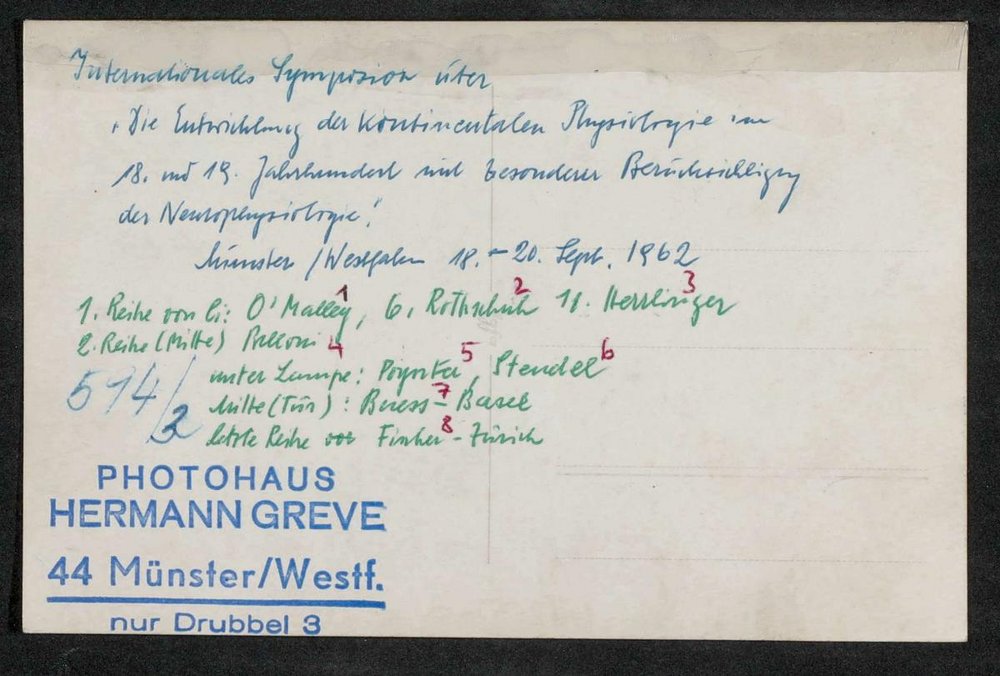 Internationales Symposion über
"Die Entwicklung der kontinentalen Physiologie im
18. und 19. Jahrhundert mit besonderer Berücksichtigung
der Neurophysiologie."
Münster/Westfalen 18. - 20. Sept. 1962
1. Reihe von li: O'Malley 1, 6. Rothschuh 2 11. Herrlinger 3
2. Reihe (Mitte) Belloni 4
unter Lampe: Poynter 5, Steudel 6
Mitte (Tür): Buess 7 - Basel
letzte Reihe Fischer 8 - Zürich
594/2
PHOTOHAUS
HERMANN GREVE
44 Münster/Westf.
nur Drubbel 3